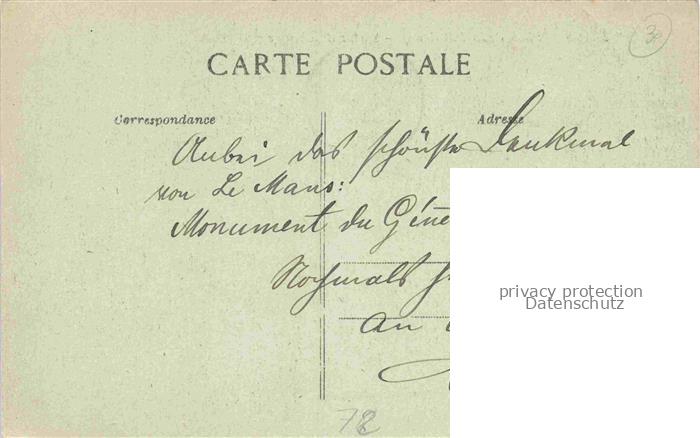 30
CARTE POSTALE
Correspondance
Adresse
Anbei das schönste Denkmal
von Le Mans:
Monument du Géné
Nochmals
An
privacy protection
Datenschutz
78